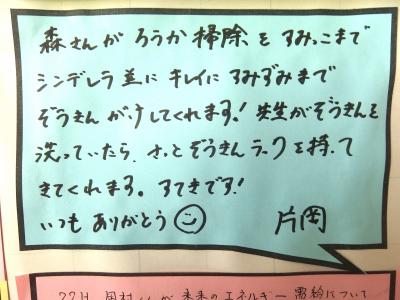 森さんが ろうか 掃除を すみっこまで
シンデレラ並に キレイに すみずみまで
ぞうきんがけしてくれます！先生がぞうきんを
洗っていたら、さっとぞうきんラックを持って
きてくれます。すてきです！
いつも ありがとう☺ 片岡
エネルギー
について